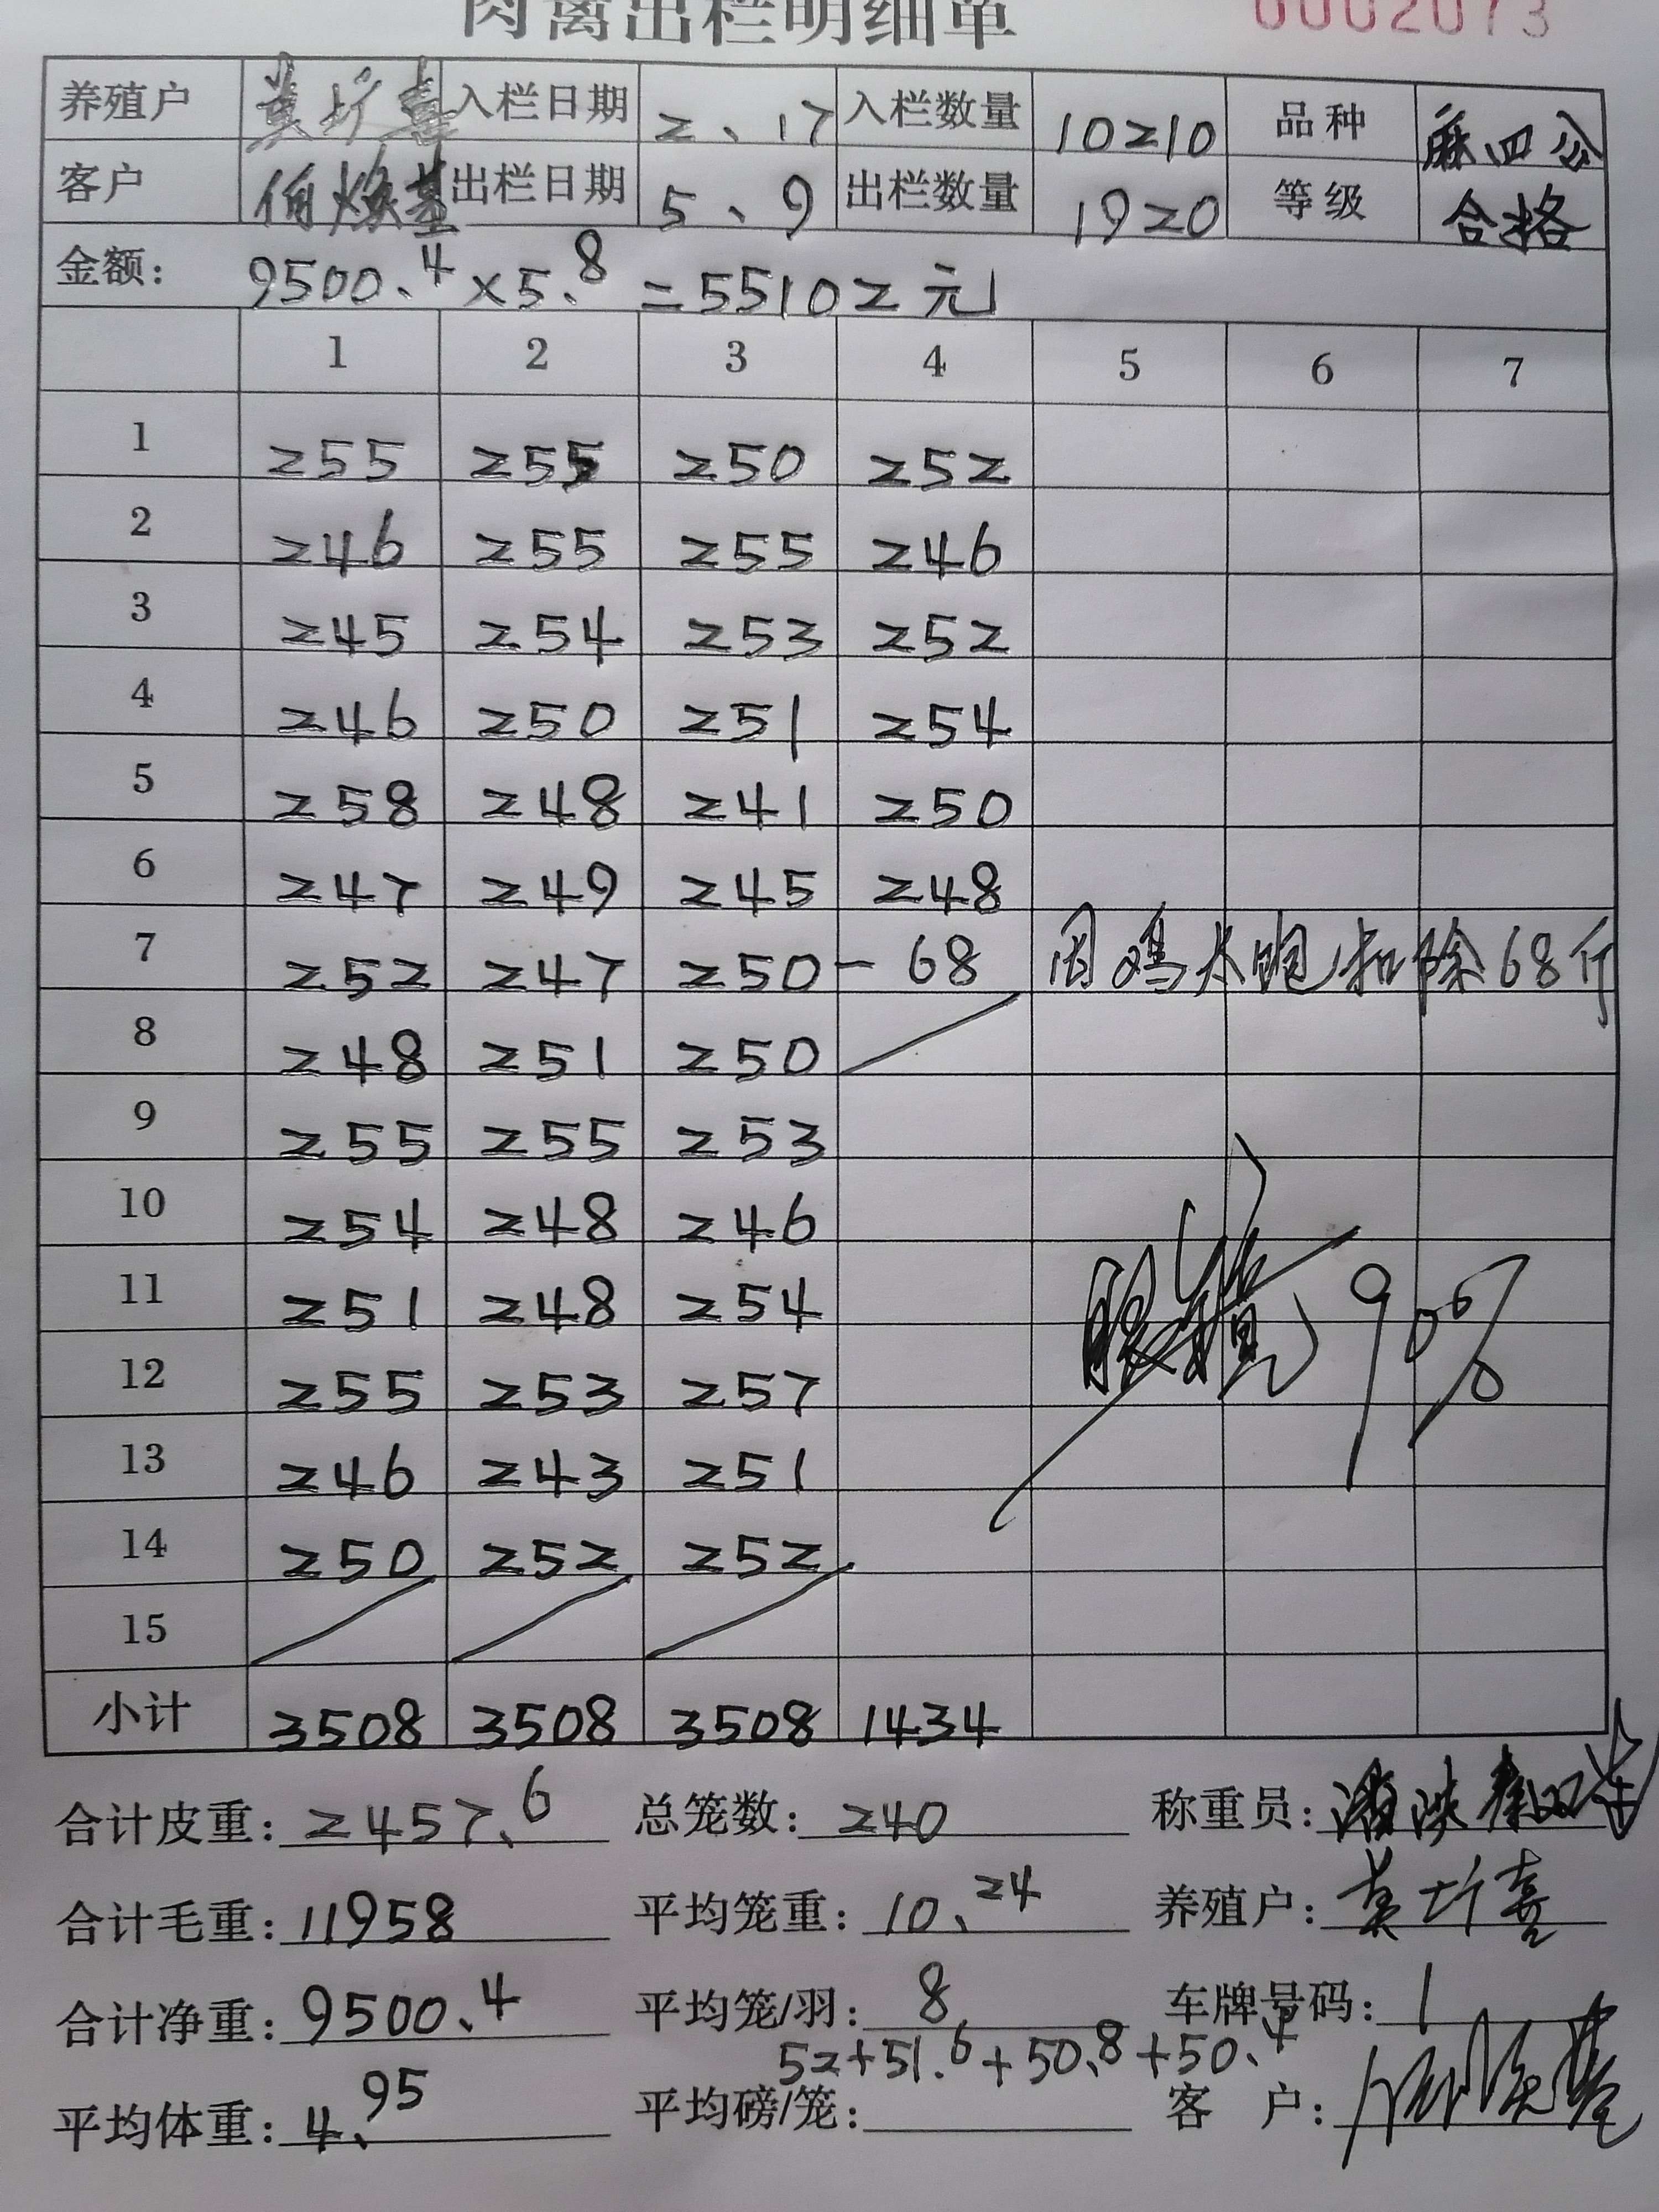 肉禽出栏明细单 0002073
养殖户 莫圻喜 入栏日期 2、17 入栏数量 10210 品种 麻四公
客户 伍焕基 出栏日期 5、9 出栏数量 1920 等级 合格
金额: 9500.4×5.8=55102元
1 2 3 4 5 6 7
1 255 255 250 252
2 246 255 255 246
3 245 254 253 252
4 246 250 251 254
5 258 248 241 250
6 247 249 245 248
7 252 247 250 -68 因鸡太饱扣除68斤
8 248 251 250
9 255 255 253
10 254 248 246
11 251 248 254
12 255 253 257
13 246 243 251
14 250 252 252
15
小计 3508 3508 3508 1434
90%
合计皮重: 2457.6 总笼数: 240 称重员:
合计毛重: 11958 平均笼重: 10.24 养殖户: 莫圻喜
合计净重: 9500.4 平均笼/羽: 8 车牌号码: 1
52+51.6+50.8+50.4
平均体重: 4.95 平均磅/笼: 客 户: